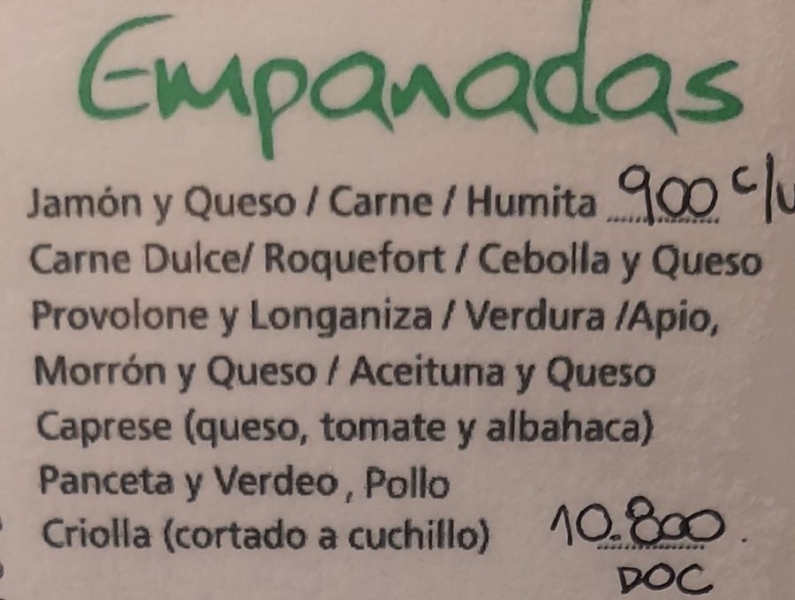 Empanadas
Jamón y Queso / Carne / Humita 900 c/u
Carne Dulce/ Roquefort / Cebolla y Queso
Provolone y Longaniza / Verdura /Apio,
Morrón y Queso / Aceituna y Queso
Caprese (queso, tomate y albahaca)
Panceta y Verdeo, Pollo
Criolla (cortado a cuchillo) 10.800.
DOC